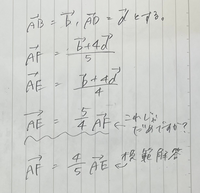 AB→ = b→, AD→ = d→ とする。
AF→ = (b→ + 4d→)/5
AE→ = (b→ + 4d→)/4
AE→ = 5/4 AF→ ← これじゃだめですか?
AF→ = 4/5 AE→ ← 模範解答